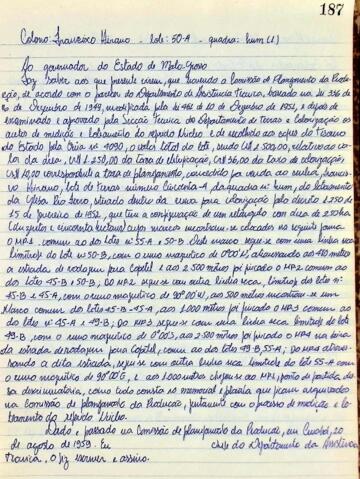 187
Colono: Francisco Hirano - lote: 50-A - quadra: hum (1)
Ao governador do Estado de Mato-Grosso
Faz saber aos que presente virem, que havendo a Comissão de Planejamento da Produ-
ção, de acordo com o parecer do Departamento de Assistência Técnica, baseado na lei 336 de
6 de Dezembro de 1949, modificada pela lei 461 de 10 de Dezembro de 1951, e depois de
examinado e aprovado pela Secção Técnica do Departamento de Terras e Colonização os
autos de medição e loteamento do referido Núcleo e de recolhido aos cofres do Tesouro
do Estado pela Guia nº 4090, o valor total do lote, sendo Cr$ 2.500,00, relativo ao va-
lor da área, Cr$ 1.250,00 da taxa de
Cr$ 56,00 da taxa de colonização,
correspondente a taxa de planejamento, concedido por venda ao senhor, Francis-
co Hirano, lote de terras número Cincoenta-A da quadra nº hum, do loteamento
da Gleba Rio Ferro, situado dentro da
para colonização pelo decreto 1.250 de
15 de Janeiro de 1952, que tem a configuração de um retângulo com área de 250 ha
(duzentos e cincoenta hectares) cujos marcos encontram-se colocados na seguinte forma
O MP1 comum ao dos lotes 55-A e 50-B. Deste marco segue-se com uma linha seca
limítrofe do lote nº 50-B, com o rumo magnético de 0º00'N, atravessando aos
a estrada de rodagem para Capital e aos 2.500 metros foi fincado o MP2 comum ao
dos lotes 45-B e 50-B. Do MP2 segue-se com outra linha seca, limítrofe dos lotes nº
45-B e 45-A, com o rumo magnético de 90º00'W, aos 500 metros encontra-se um
Marco comum dos lotes 45-B - 45-A, aos 1.000 metros foi fincado o MP3 comum ao
do lotes nº 45-A e 49-B; Do MP3 segue-se com uma linha seca limítrofe do lote
49-B, com o rumo magnético de 0º00'S, aos 2.500 metros foi fincado o MP4 na beira
da estrada de rodagem para Capital, comum ao dos lotes 49-B, 55-A; Do MP4
a dita estrada, segue-se com outra linha seca limítrofe do lote 55-A com
o rumo magnético de 90º00'E, e aos 1.000 metros chega-se ao MP1, ponto de partida des-
sa descriminatória, como tudo consta no memorial e planta que ficam arquivados
na Comissão de planejamento da Produção, juntamente com o processo de medição e lo-
teamento do referido Núcleo.
Dado e passado na Comissão de planejamento da Produção, em Cuiabá, 20
de agosto de 1959. Eu
chefe do Departamento da Assistência
Técnica, o fiz escrever e assino.